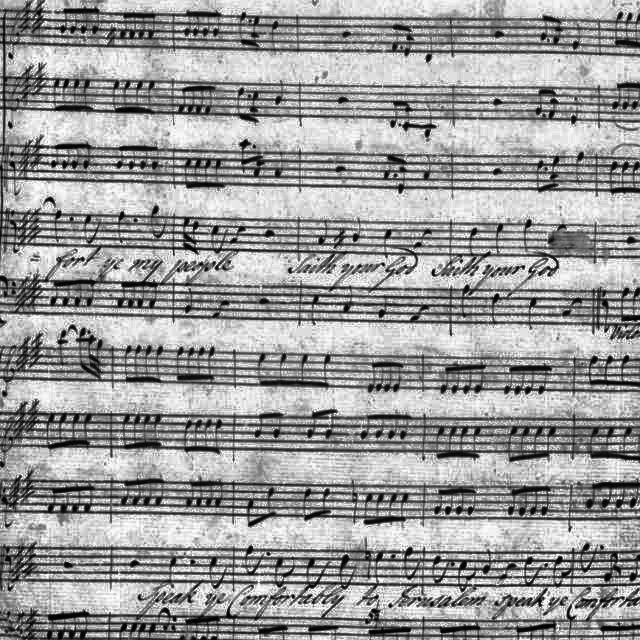 fort ye my people saith your God saith your God
speak ye Comfortably to Jerusalem speak ye Comforta